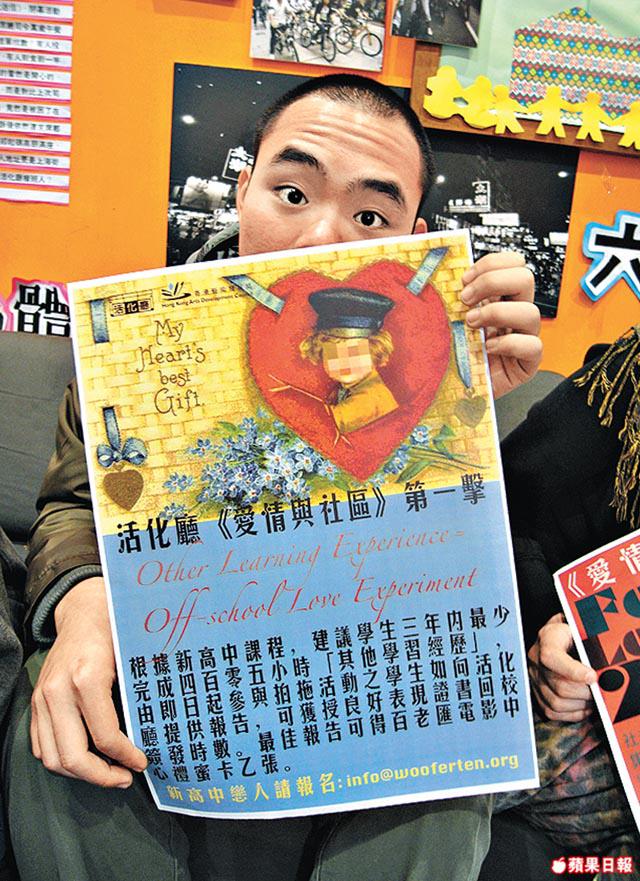 活化廳
香港藝術發展
Hong Kong Arts Development Council
My
Heart's
best
Gift
活化廳《愛情與社區》第一擊
Other Learning Experience=
Off-school Love Experiment
根據新高中課程，建議學生三年內最少，
完成四百零五小時「其他學習經歷」，
由即日起參與拍拖活動之學生如向活化
廳提供報告，可獲授良好表現證書回校
簽發時數。最佳報告可得百老匯電影中
心禮蜜卡乙張。
新高中戀人請報名:info@wooferten.org
《愛情
體
六
蘋果日報